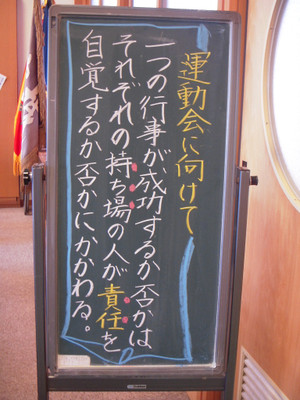 運動会に向けて
一つの行事が成功するか否かは、
それぞれの持ち場の人が責任を
自覚するか否かにかかわる。